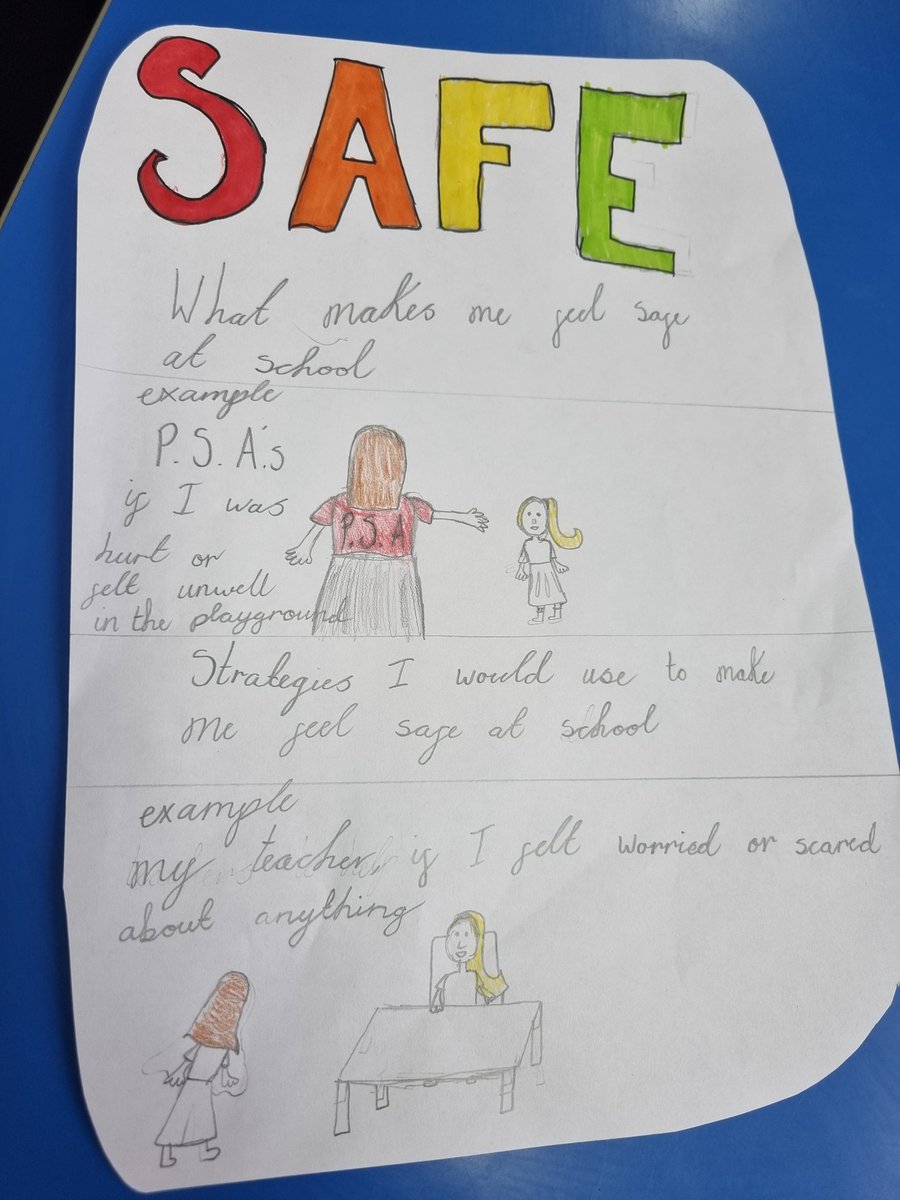 SAFE
What makes me feel safe
at school
example
P.S.A's
if I was
hurt or
felt unwell
in the playground
P.S.A
Strategies I would use to make
me feel safe at school
example
my teacher if I felt worried or scared
about anything